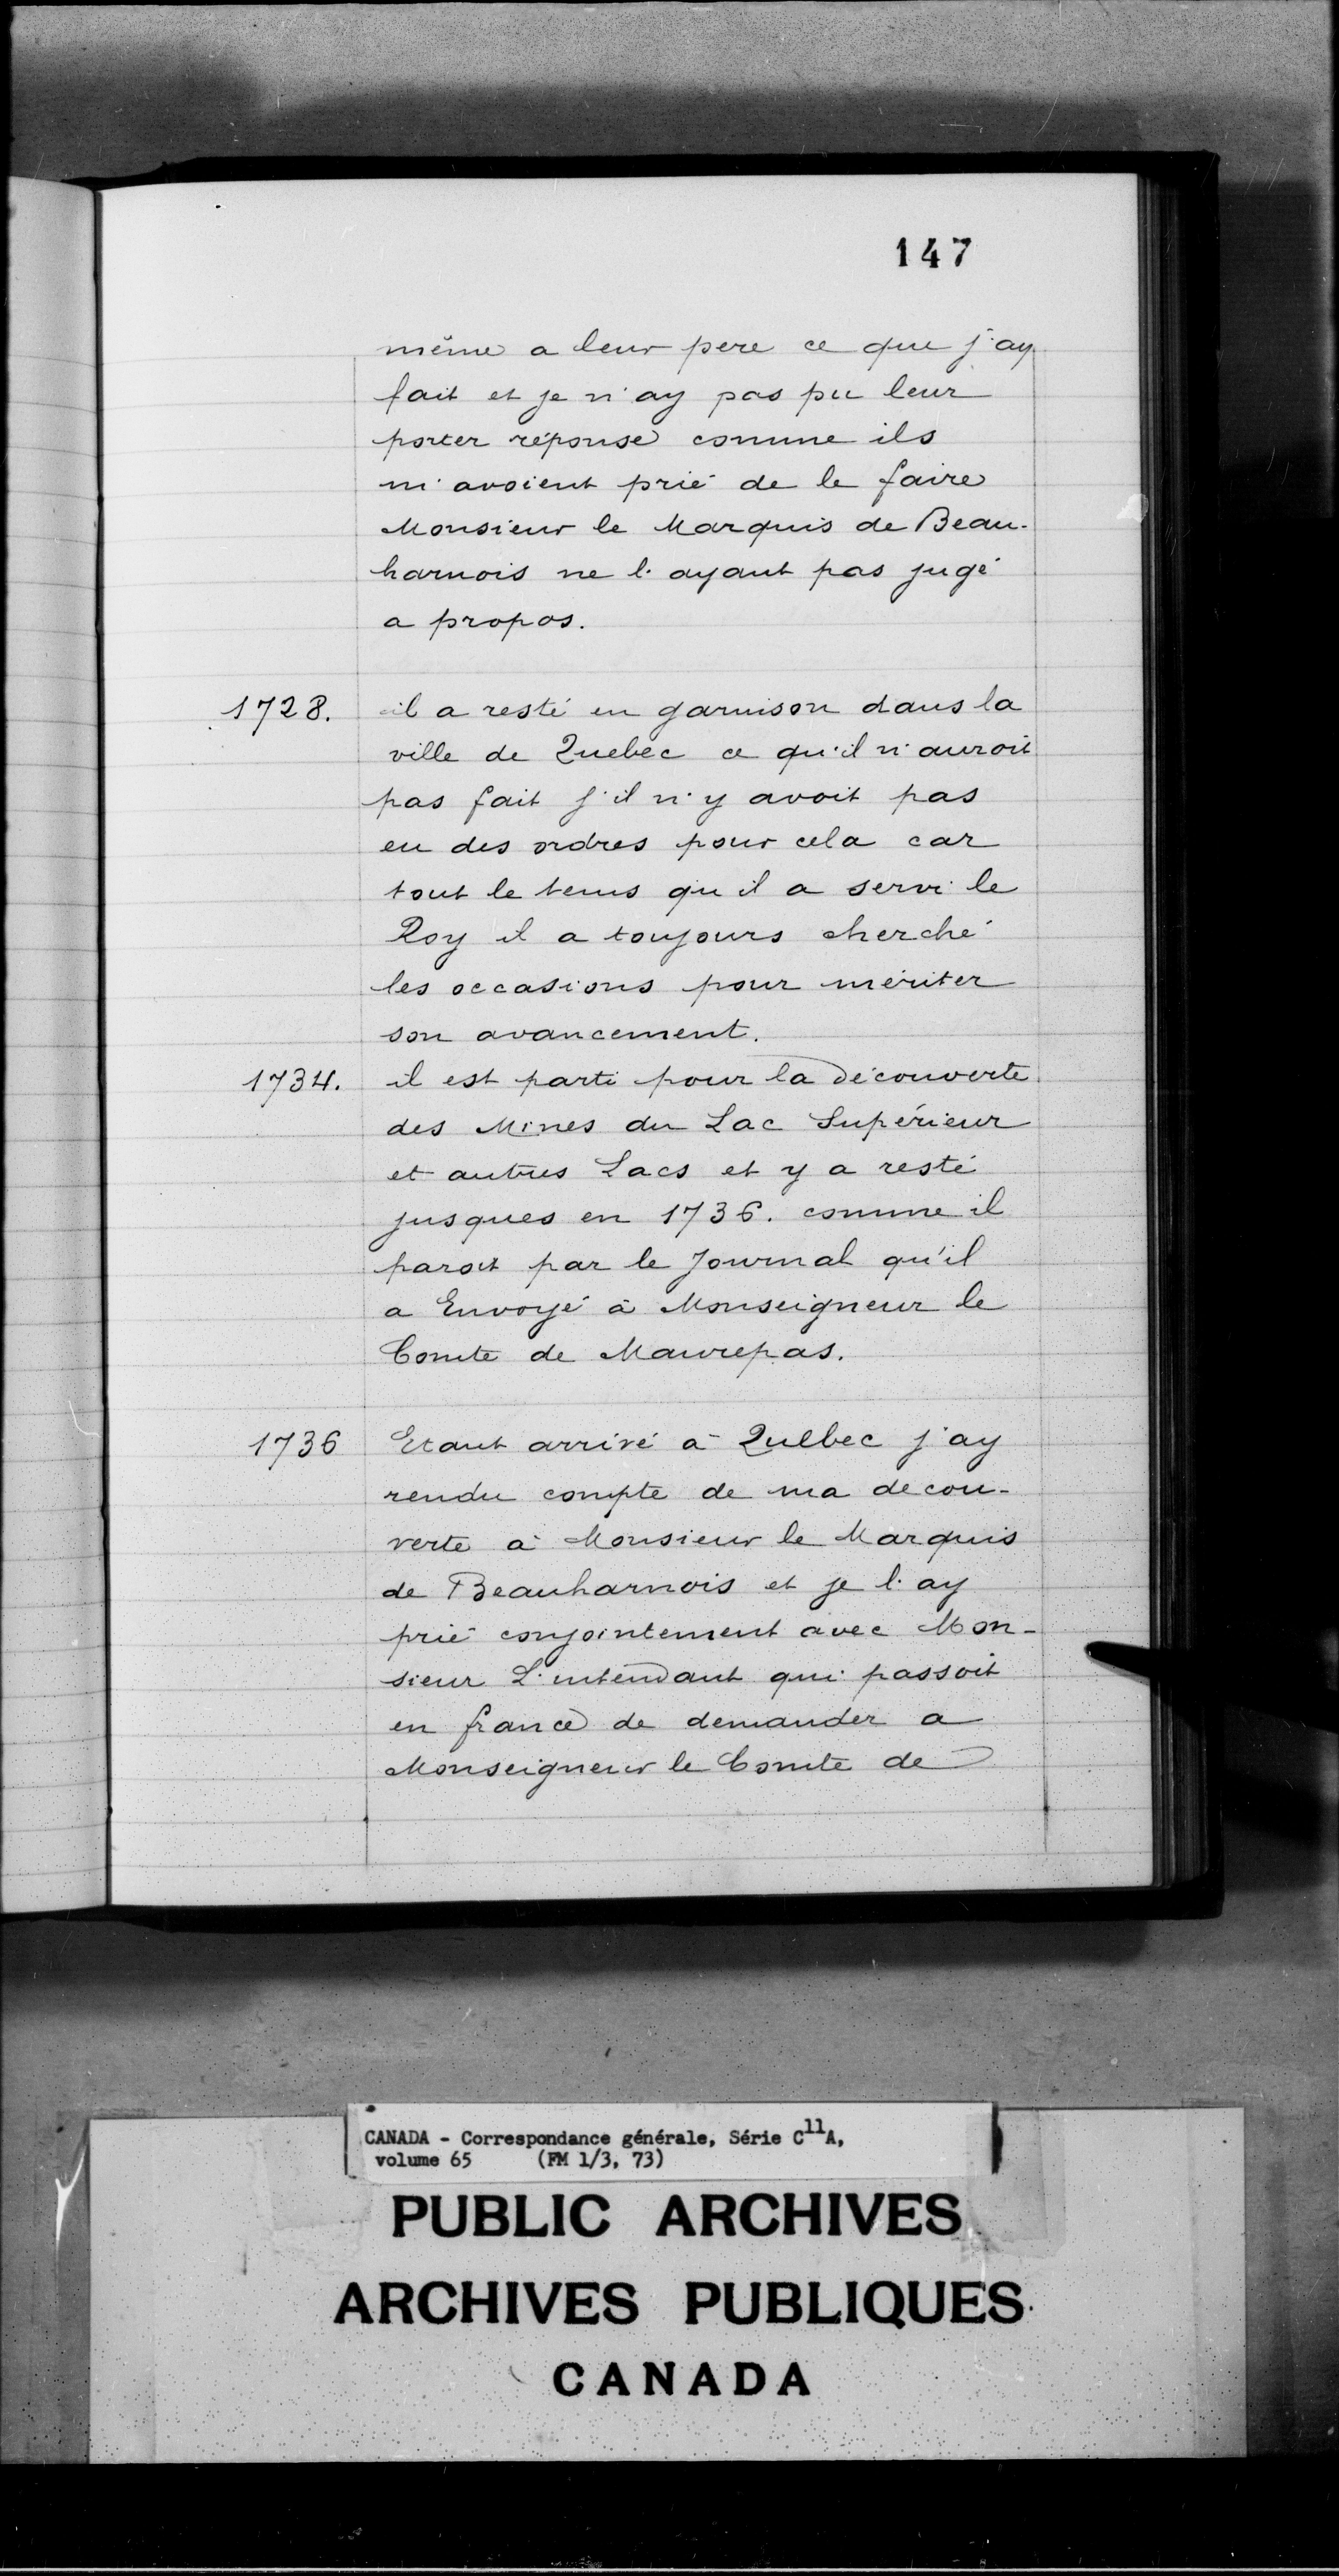 147
même a leur pere ce que j'ay
fait et je n'ay pas pu leur
porter réponse comme ils
m'avoient prié de le faire
Monsieur le Marquis de Beau-
harnois ne l'ayant pas jugé
a propos.
1728. il a resté en garnison dans la
ville de Quebec ce qu'il n'auroit
pas fait s'il n'y avoit pas
eu des ordres pour cela car
tout le tems qu'il a servi le
Roy il a toujours cherché
les occasions pour mériter
son avancement.
1734. il est parti pour la découverte
des Mines du Lac Supérieur
et autres Lacs et y a resté
jusques en 1736. comme il
paroit par le Journal qu'il
a Envoyé à Monseigneur le
Comte de Maurepas.
1736 Etant arrivé à Québec j'ay
rendu compte de ma decou-
verte à Monsieur le Marquis
de Beauharnois et je l'ay
prié conjointement avec Mon-
sieur L'intendant qui passoit
en france de demander a
Monseigneur le Comte de
CANADA - Correspondance générale, Série C11A,
volume 65 (FM 1/3, 73)
PUBLIC ARCHIVES
ARCHIVES PUBLIQUES
CANADA